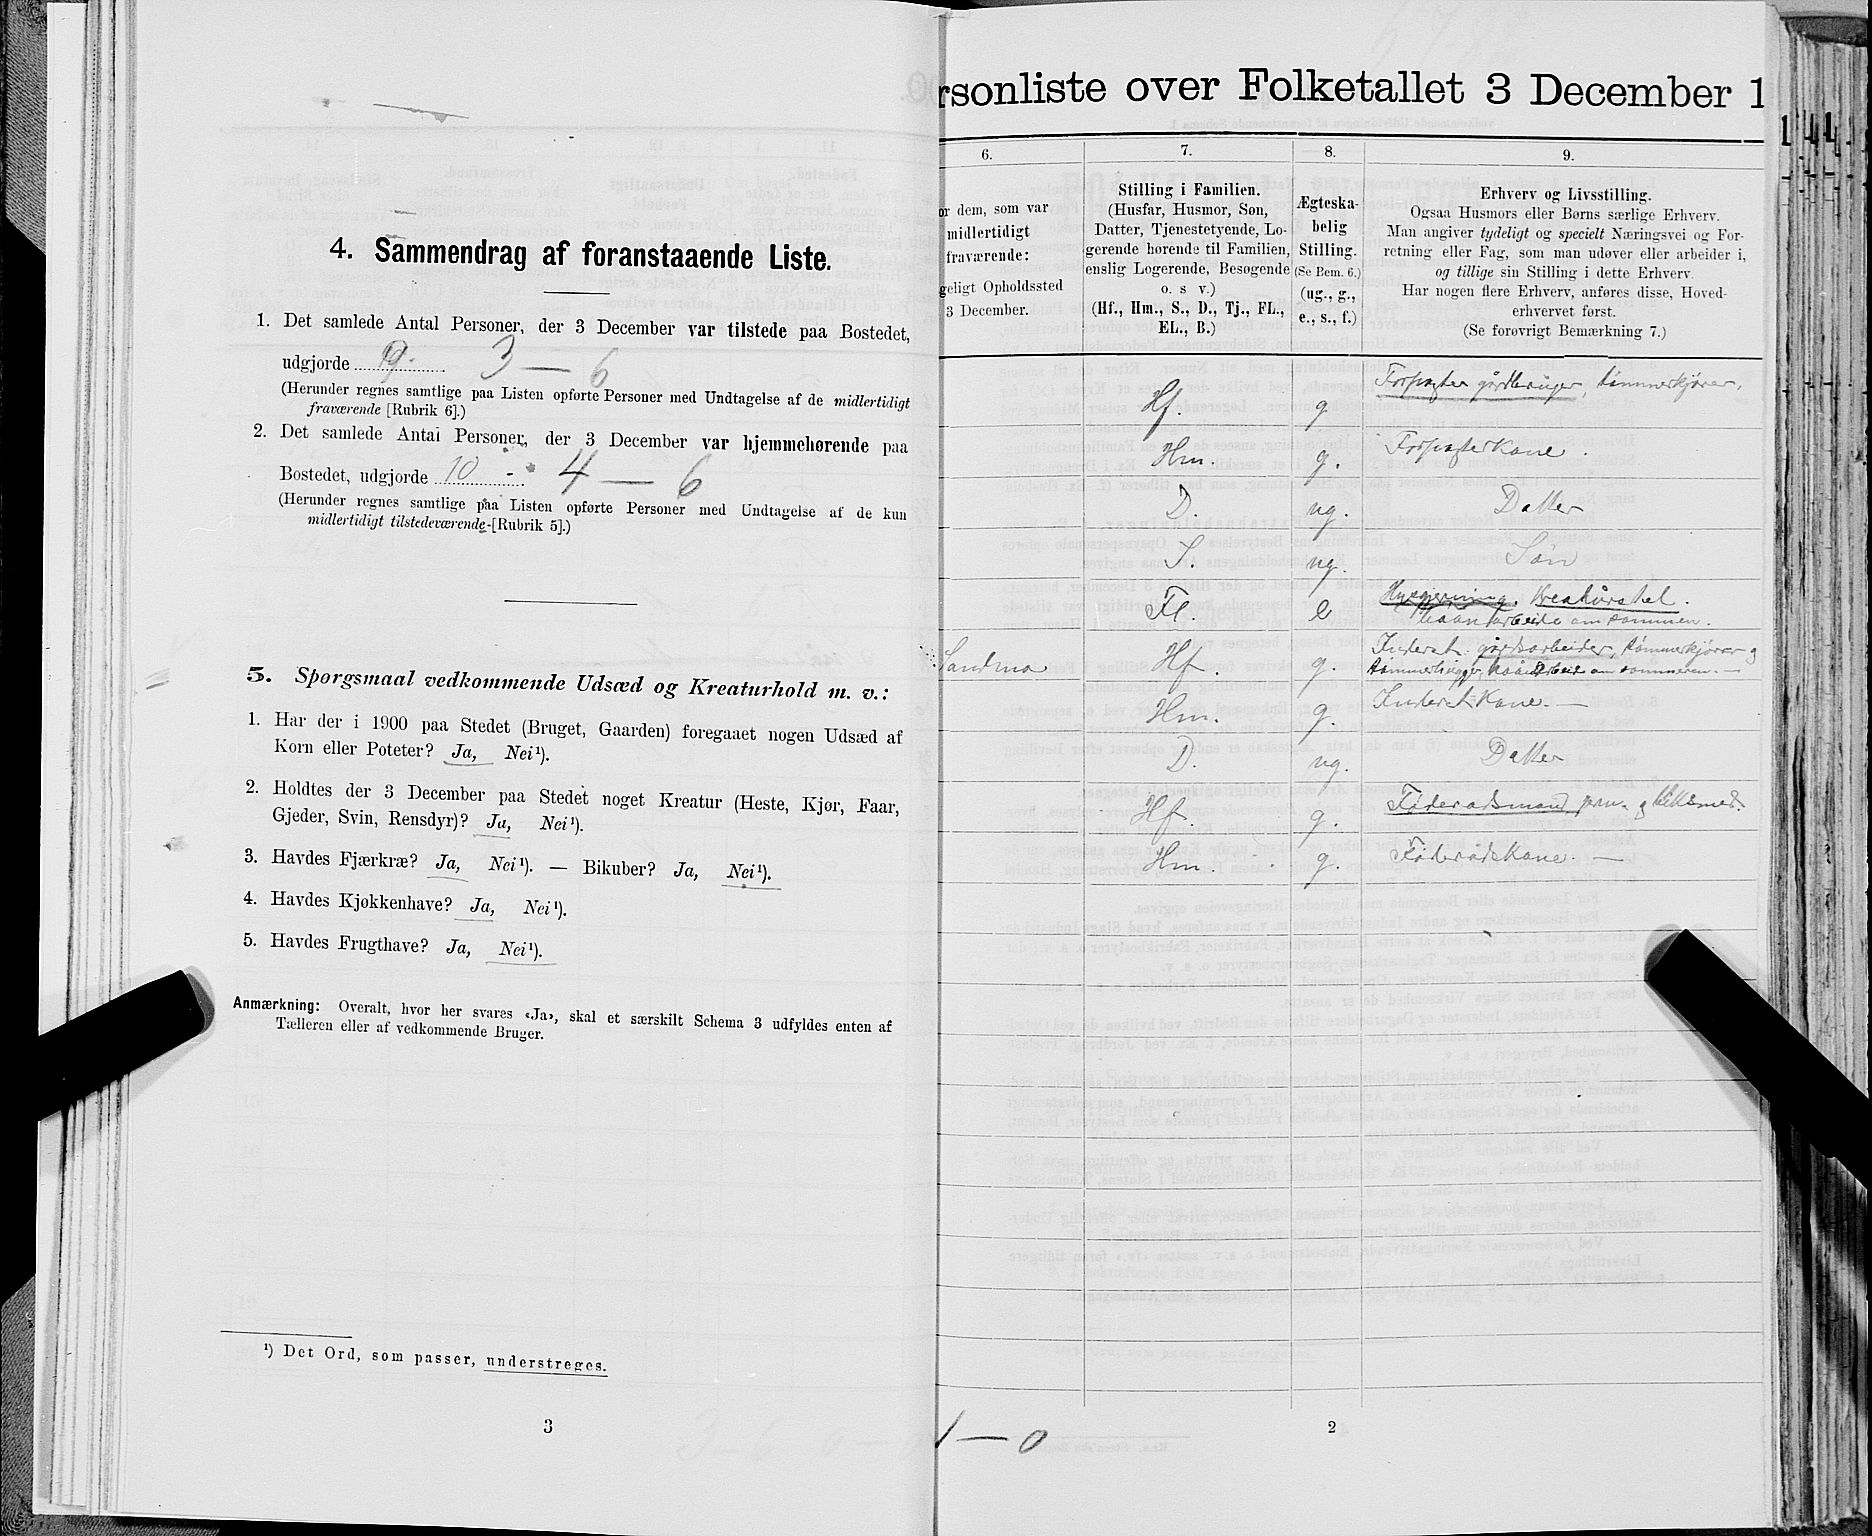 4. Sammendrag af foranstaaende Liste.
1. Det samlede Antal Personer, der 3 December var tilstede paa Bostedet,
udgjorde 9. 3 — 6
(Herunder regnes samtlige paa Listen opførte Personer med Undtagelse af de midlertidigt
fraværende [Rubrik 6].)
2. Det samlede Antal Personer, der 3 December var hjemmehørende paa
Bostedet, udgjorde 10 - 4 — 6
(Herunder regnes samtlige paa Listen opførte Personer med Undtagelse af de kun
midlertidigt tilstedeværende [Rubrik 5].)
5. Spørgsmaal vedkommende Udsæd og Kreaturhold m. v.:
1. Har der i 1900 paa Stedet (Bruget, Gaarden) foregaaet nogen Udsæd af
Korn eller Poteter? Ja, Nei¹).
2. Holdtes der 3 December paa Stedet noget Kreatur (Heste, Kjør, Faar,
Gjeder, Svin, Rensdyr)? Ja, Nei¹).
3. Havdes Fjærkræ? Ja, Nei¹). — Bikuber? Ja, Nei¹).
4. Havdes Kjøkkenhave? Ja, Nei¹).
5. Havdes Frugthave? Ja, Nei¹).
Anmærkning: Overalt, hvor her svares «Ja», skal et særskilt Schema 3 udfyldes enten af
Tælleren eller af vedkommende Bruger.
¹) Det Ord, som passer, understreges.
3
rsonliste over Folketallet 3 December 1
6.
or dem, som var
midlertidigt
fraværende:
geligt Opholdssted
3 December.
7.
Stilling i Familien.
(Husfar, Husmor, Søn,
Datter, Tjenestetyende, Lo-
gerende hørende til Familien,
enslig Logerende, Besøgende
o. s v.)
(Hf., Hm., S., D., Tj., FL.,
EL., B.)
8.
Ægteska-
belig
Stilling.
(Se Bem. 6.)
(ug., g.,
e., s., f.)
9.
Erhverv og Livsstilling.
Ogsaa Husmors eller Børns særlige Erhverv.
Man angiver tydeligt og specielt Næringsvei og For-
retning eller Fag, som man udøver eller arbeider i,
og tillige sin Stilling i dette Erhverv.
Har nogen flere Erhverv, anføres disse, Hoved-
erhvervet først.
(Se forøvrigt Bemærkning 7.)
Hf. g Forpagter gårdbruger, tømmerkjører,
Hm. g. Forpagterkone.
D. ug. Datter
S. ug. Søn
Fl. e Husgjerning. Kreaturstel.
arbeide om sommen.
Sandmo Hf. g. Inderst. gårdsarbeider, tømmerkjører og
tømmerhugger om sommeren. —
Hm. g. Inderstkone. —
D. ug. Datter
Hf. g. Føderadsmand, og
Hm. g. Føderådskone. —
1 — 0
2